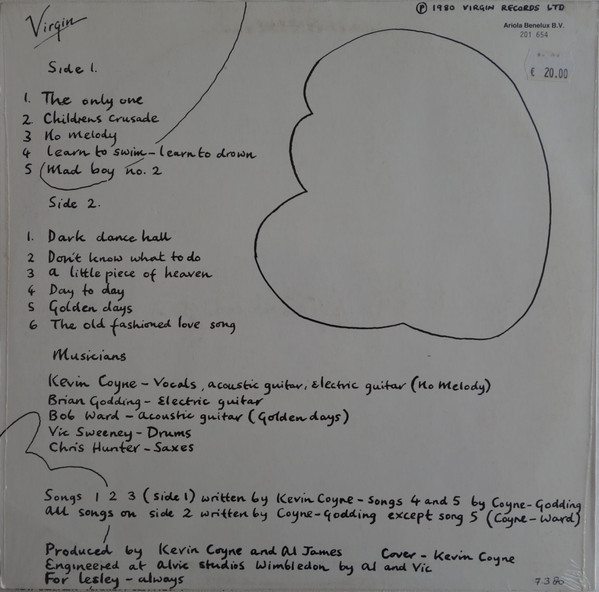 Virgin
℗ 1980 VIRGIN RECORDS LTD
Ariola Benelux B.V.
201 654
€ 20.00
Side 1.
1. The only one
2. Childrens crusade
3 No melody
4 learn to swim - learn to drown
5 (Mad boy no. 2
Side 2.
1. Dark dance hall
2 Don't know what to do
3 a little piece of heaven
4 Day to day
5 Golden days
6 The old fashioned love song
Musicians
Kevin Coyne - Vocals, acoustic guitar, Electric guitar (No Melody)
Brian Godding - Electric guitar
Bob Ward - acoustic guitar (Golden days)
Vic Sweeney - Drums
Chris Hunter - Saxes
Songs 1 2 3 (side 1) written by Kevin Coyne - Songs 4 and 5 by Coyne-Godding
All songs on side 2 written by Coyne-Godding except song 5 (Coyne-Ward)
Produced by Kevin Coyne and Al James Cover - Kevin Coyne
Engineered at alvic studios Wimbledon by al and Vic
For Lesley - always
7.3.80